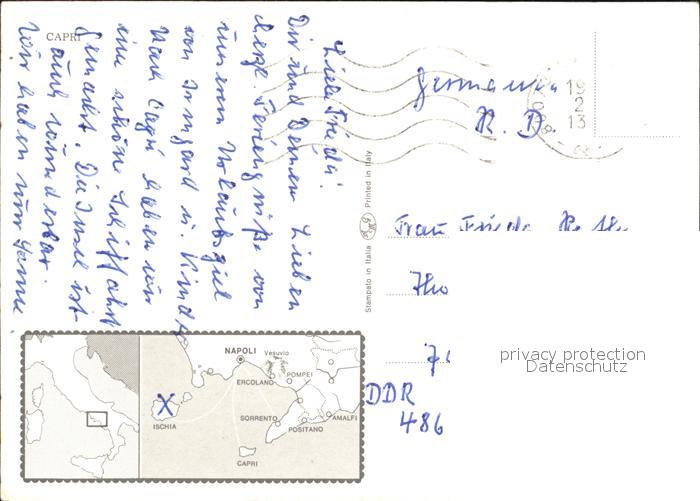 CAPRI
Liebe Frieda!
Dir und Deinen Lieben
herzl. Feriengrüße von
unserem Urlaubsziel
von Irmgard u. Kinder
Nach Capri haben wir
eine schöne Schiffahrt
gemacht. Die Insel ist
auch wunderbar.
Wir haben nur Sonne.
Germania
R. D
19
2
13
Frau Frieda
DDR
486
privacy protection
Datenschutz
Stampato in Italia
Printed in Italy
NAPOLI
Vesuvio
ERCOLANO
POMPEI
X
ISCHIA
SORRENTO
POSITANO
AMALFI
CAPRI